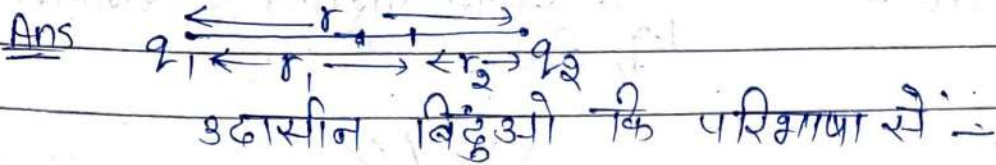 Ans r
q₁ r₁ r₂ q₂
उदासीन बिंदुओ कि परिभाषा सें :-